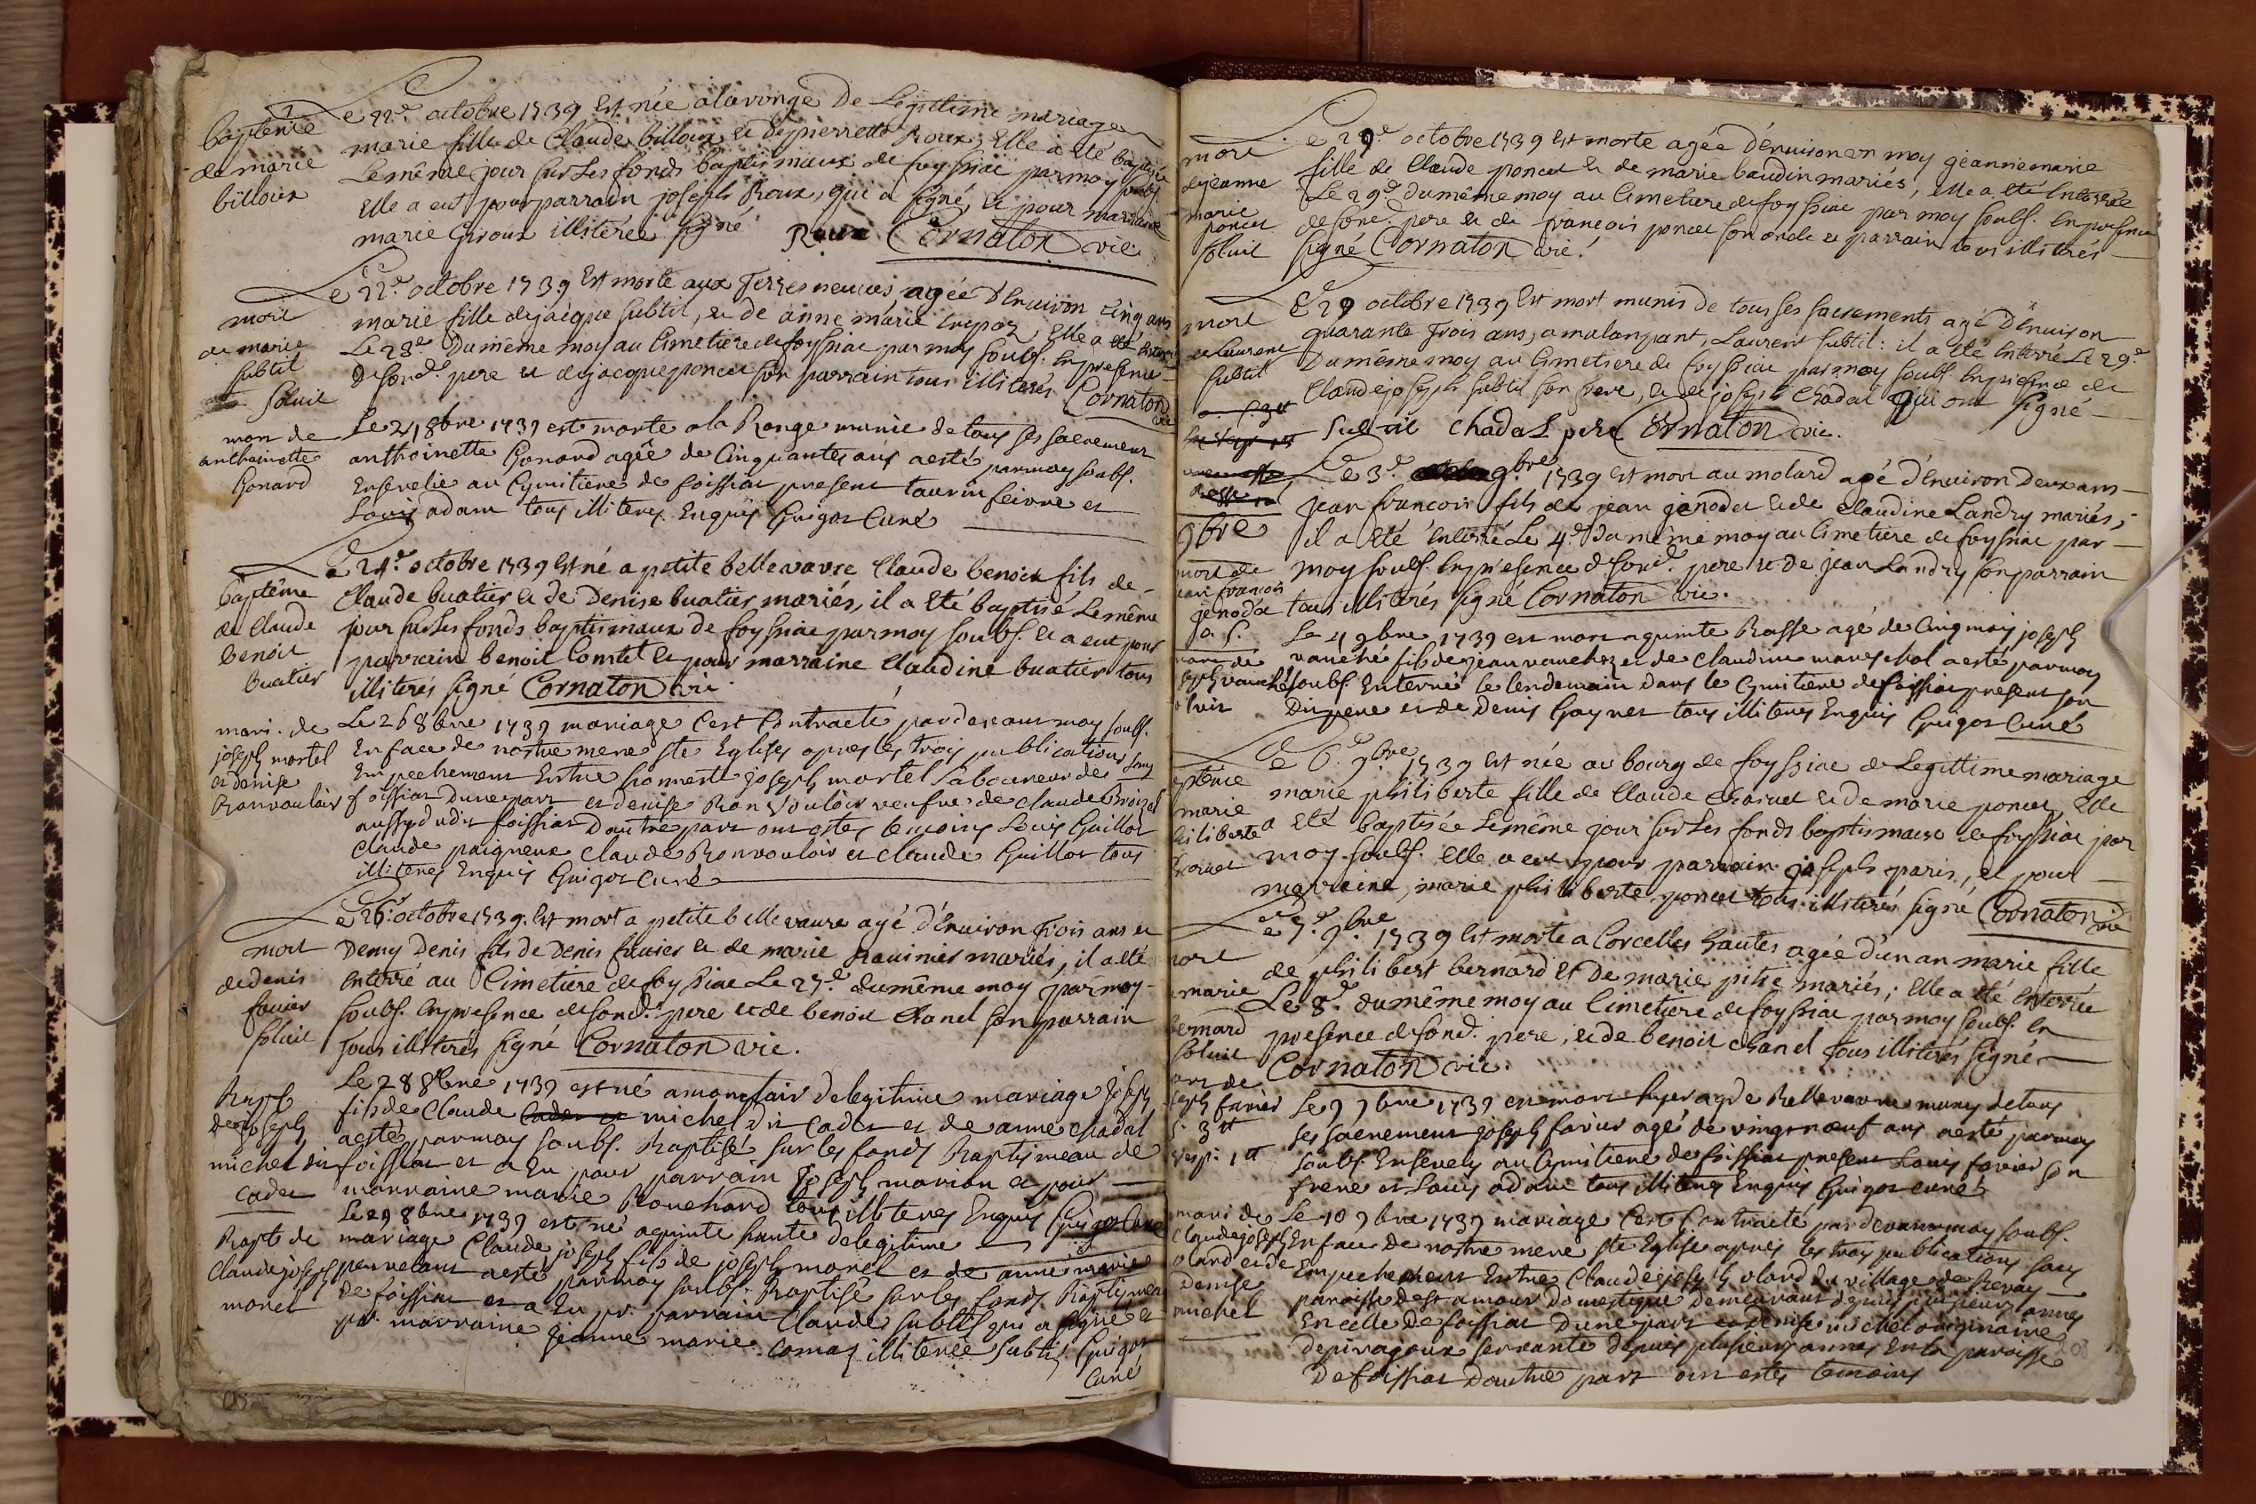 baptême
de marie
billoux
Le 22e octobre 1739 est née alaronge De Legittime mariage
marie fille de Claude billoux et de pierrette Roux, Elle a eté baptisée
Le même jour sur Les fonds baptismaux de foyssiac par moy soubs.
Elle a eut pour parrain joseph Roux, qui a signé, et pour marraine
marie Giroux illiterée signé Roux Cornaton vic.
mort
de marie
subtil
soluit
Le 22e octobre 1739 est morte aux Terres neuves, agée d'Environ cinq ans
marie fille de jacque subtil, et de anne marie
Le 23e Du même moy au Cimetiere de foyssiac par moy soubs. En presence
de sond. pere et de jacque poncet son parrain tous illiterés Cornaton
vic
mort de
anthoinette
Gonard
Le 24 8bre 1739 est morte a la Ronge munie de tous ses sacrements
anthoinette Gonard agée de Cinquantes ans aesté par moy soubs.
Ensevelie au Cymitiere de foissiat present taurin feivre et
Louis adam tous illiteres Enquis Guigot Curé
baptême
de Claude
benoit
buatier
Le 24e octobre 1739 est né a petite bellevavre Claude benoit fils de
Claude buatier et de Denise buatier mariés, il a eté baptisé Le même
jour sur Les fonds baptismaux de foyssiac par moy soubs. et a eut pour
parrain benoit Comtet et pour marraine Claudine buatier tous
illiterés signé Cornaton vic.
mari. de
joseph mortel
et denise
Ronvouloir
Le 26 8bre 1739 mariage C'est Contracté pardevant moy soubs.
En face de nostre mere ste Eglise apres les trois publications sans
Empechement Entre honneste joseph mortel Laboureur de
foissiat Dune part et denise Ronvouloir veufve de Claude
aussy dudit foissiat Dautre part ont estes temoins Louis Guillot
Claude paigneux Claude Ronvouloir et Claude Guillot tous
illiteres Enquis Guigot Curé
mort
de denis
favier
soluit
Le 26e octobre 1739. Est mort a petite bellevavre agé d'Environ Trois ans et
Demy Denis fils de Denis favier et de marie mariés, il a eté
Enterré au Cimetiere de foyssiac Le 27e du même moy par moy
soubs. En presence de sond. pere et de benoit Chanel son parrain
Tous illiterés signé Cornaton vic.
Bapt.
de joseph
michel dit
Cadet
Le 28 8bre 1739 est né amontfair de legitime mariage joseph
fils de Claude michel dit Cadet et de anne Chadal
aesté par moy soubs. Baptisé sur les fonds Baptismeau de
foissiat et a Eu pour parrain joseph marion et pour
marraine marie Bouchard tous illiteres Enquis Guigot Curé
Bapt. de
Claude joseph
morel
Le 29 8bre 1739 est né aquinte hante de legitime
mariage Claude joseph fils de joseph morel et de anne marie
pennelant aesté par moy soubs. Baptisé sur les fonds Baptismeau
de foissiat et a Eu pr. parrain Claude subtil qui a signé et
pr. marraine jeanne marie Comas illiterée Subtil Guigot
Curé
mort
de jeanne
marie
poncet
soluit
Le 29e octobre 1739 est morte agée d'Environ un moy jeanne marie
fille de Claude poncet et de marie baudin mariés, elle a eté Enterrée
Le 29e du même moy au Cimetiere de foyssiac par moy soubs. En presence
de sond. pere et de francois poncet son oncle et parrain tous illiterés
signé Cornaton vic.
mort
de Laurent
subtil
Le 29 octobre 1739 est mort munis de tous ses sacrements agé D'Environ
quarante Trois ans, amalangant, Laurent subtil: il a eté Enterré Le 29e
Du même moy au Cimetiere de foyssiac par moy soubs. En presence de
Claude joseph subtil son frere, et de joseph Chadal qui ont signé
Subtil Chadal pere Cornaton vic.
9bre
mort de
jean francois
jenodet
Le 3e 9bre 1739 est mort au molard agé d'Environ Deux ans
jean francois fils de jean jenodet et de Claudine Landry mariés,
il a eté Enterré Le 4e Du même moy au Cimetiere de foyssiac par
moy soubs. En presence de sond. pere et de jean Landry son parrain
tous illiterés signé Cornaton vic.
mort de
joseph vauché
soluit
Le 4 9bre 1739 est mort aquinte Basse agé de Cinq moy joseph
vauché fils de jean vauchez et de Claudine mareschal aesté par moy
soubs. Enterré le lendemain dans le Cymitiere de foissiat present son
Dit pere et de denis Gaynet tous illiteres Enquis Guigot Curé
baptême
marie
philiberte
Charvet
Le 6e 9bre 1739 est née au bourg de foyssiac de Legittime mariage
marie philiberte fille de Claude Charvet et de marie poncet, Elle
a eté baptisée Le même jour sur Les fonds baptismaux de foyssiac par
moy soubs. Elle a eut pour parrain joseph paris, et pour
marraine, marie philiberte poncet tous illiterés signé Cornaton vic
mort
de marie
bernard
soluit
Le 7e 9bre 1739 est morte a Corcelles hautes agée d'un an marie fille
de philibert bernard et De marie pitre mariés; Elle a eté Enterrée
Le 8e du même moy au Cimetiere de foyssiac par moy soubs. En
presence de sond. pere, et de benoit Chanel Tous illiterés signé
Cornaton vic.
mort de
joseph favier
Le 9 9bre 1739 est mort hyer agrde Bellevavre muny de tous
ses sacrements joseph favier agé de vingt nœuf ans aesté par moy
soubs. Ensevely au Cymitiere de foissiat present Louis favier son
frere et Louis adam tous illiteres Enquis Guigot curé
mari de
Claude joseph
oland et de
Denise
michel
Le 10 9bre 1739 mariage C'est Contracté par devant moy soubs.
En face de nostre mere ste Eglise apres les trois publications sans
Empechement Entre Claude joseph oland du village de
paroisse de st amour Domestique Demeurant depuis plusieurs années
En celle de foissiat Dune part et denise michel originaire
depirajoux servante depuis plusieurs années En la paroisse
De foissiat Dautre part ont estes temoins